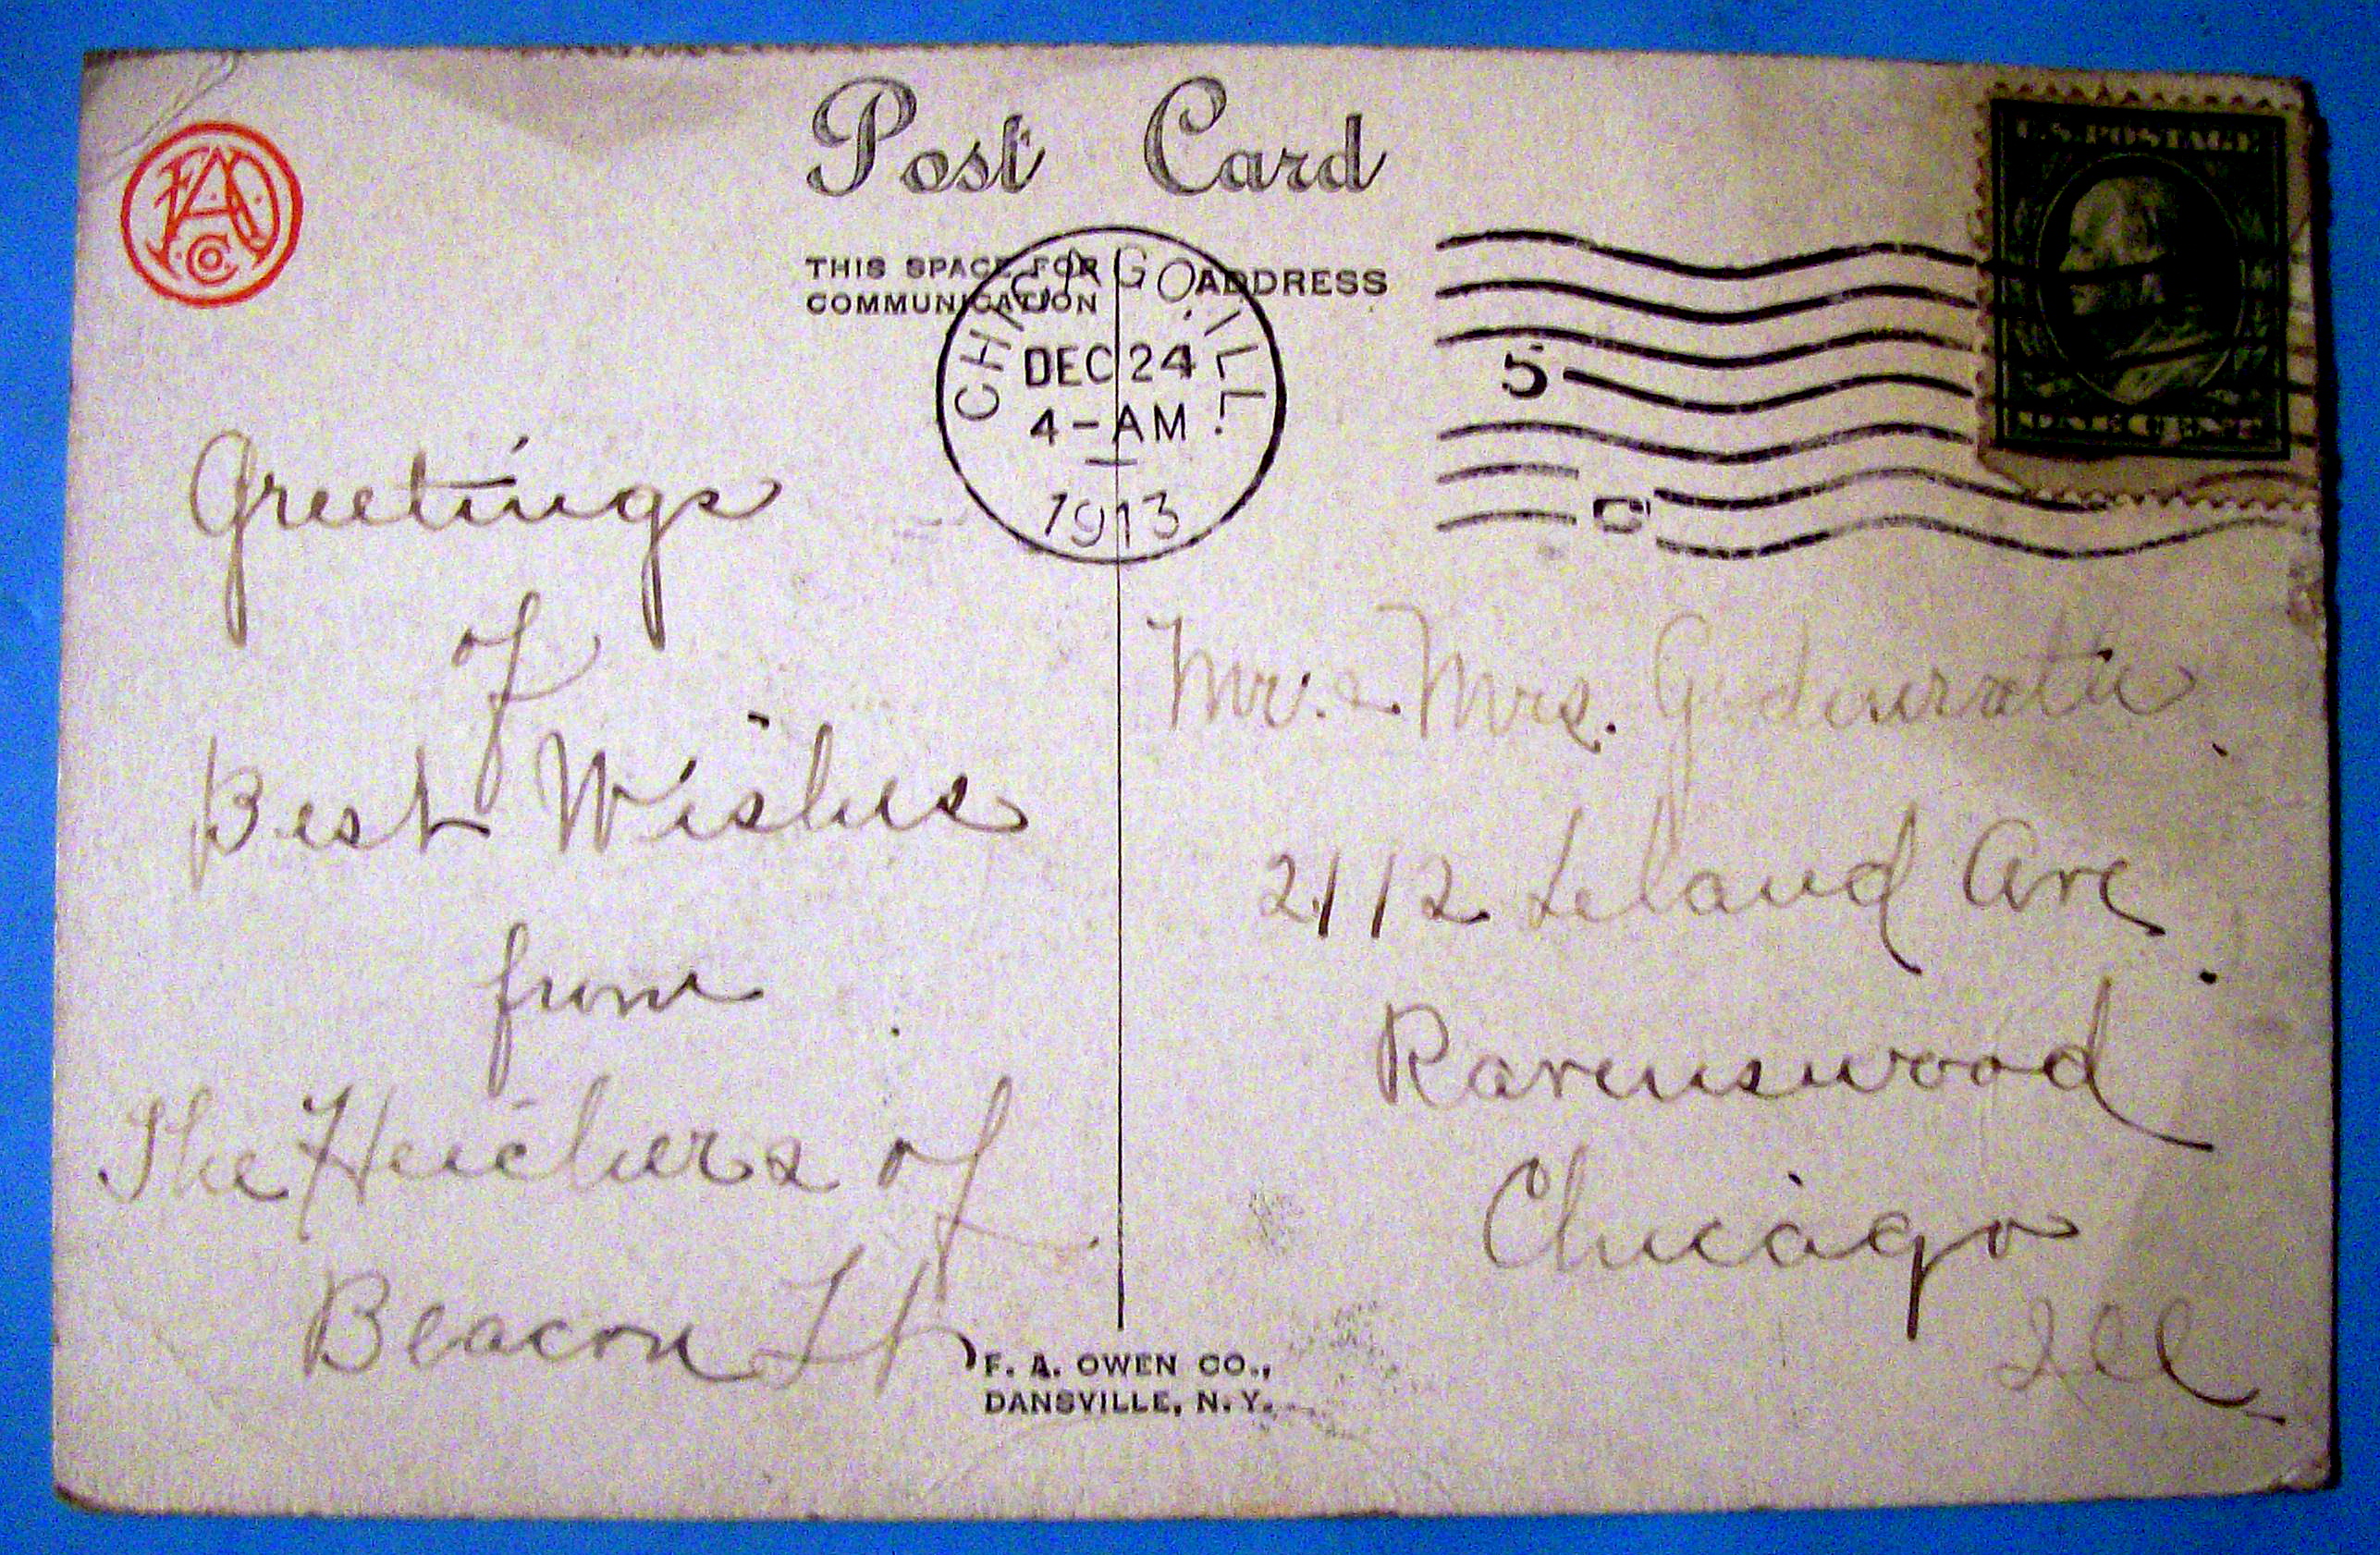 Post Card
THIS SPACE FOR
COMMUNICATION
ADDRESS
CHICAGO, ILL.
DEC 24
4-AM
1913
5
C
U.S. POSTAGE
ONE CENT
FAO
CO
Greetings
of
Best Wishes
from
The Heichers of
Beacon St
Mr. & Mrs. G.
2112 Leland Ave
Ravenswood
Chicago
Ill
F. A. OWEN CO.,
DANSVILLE, N.Y.